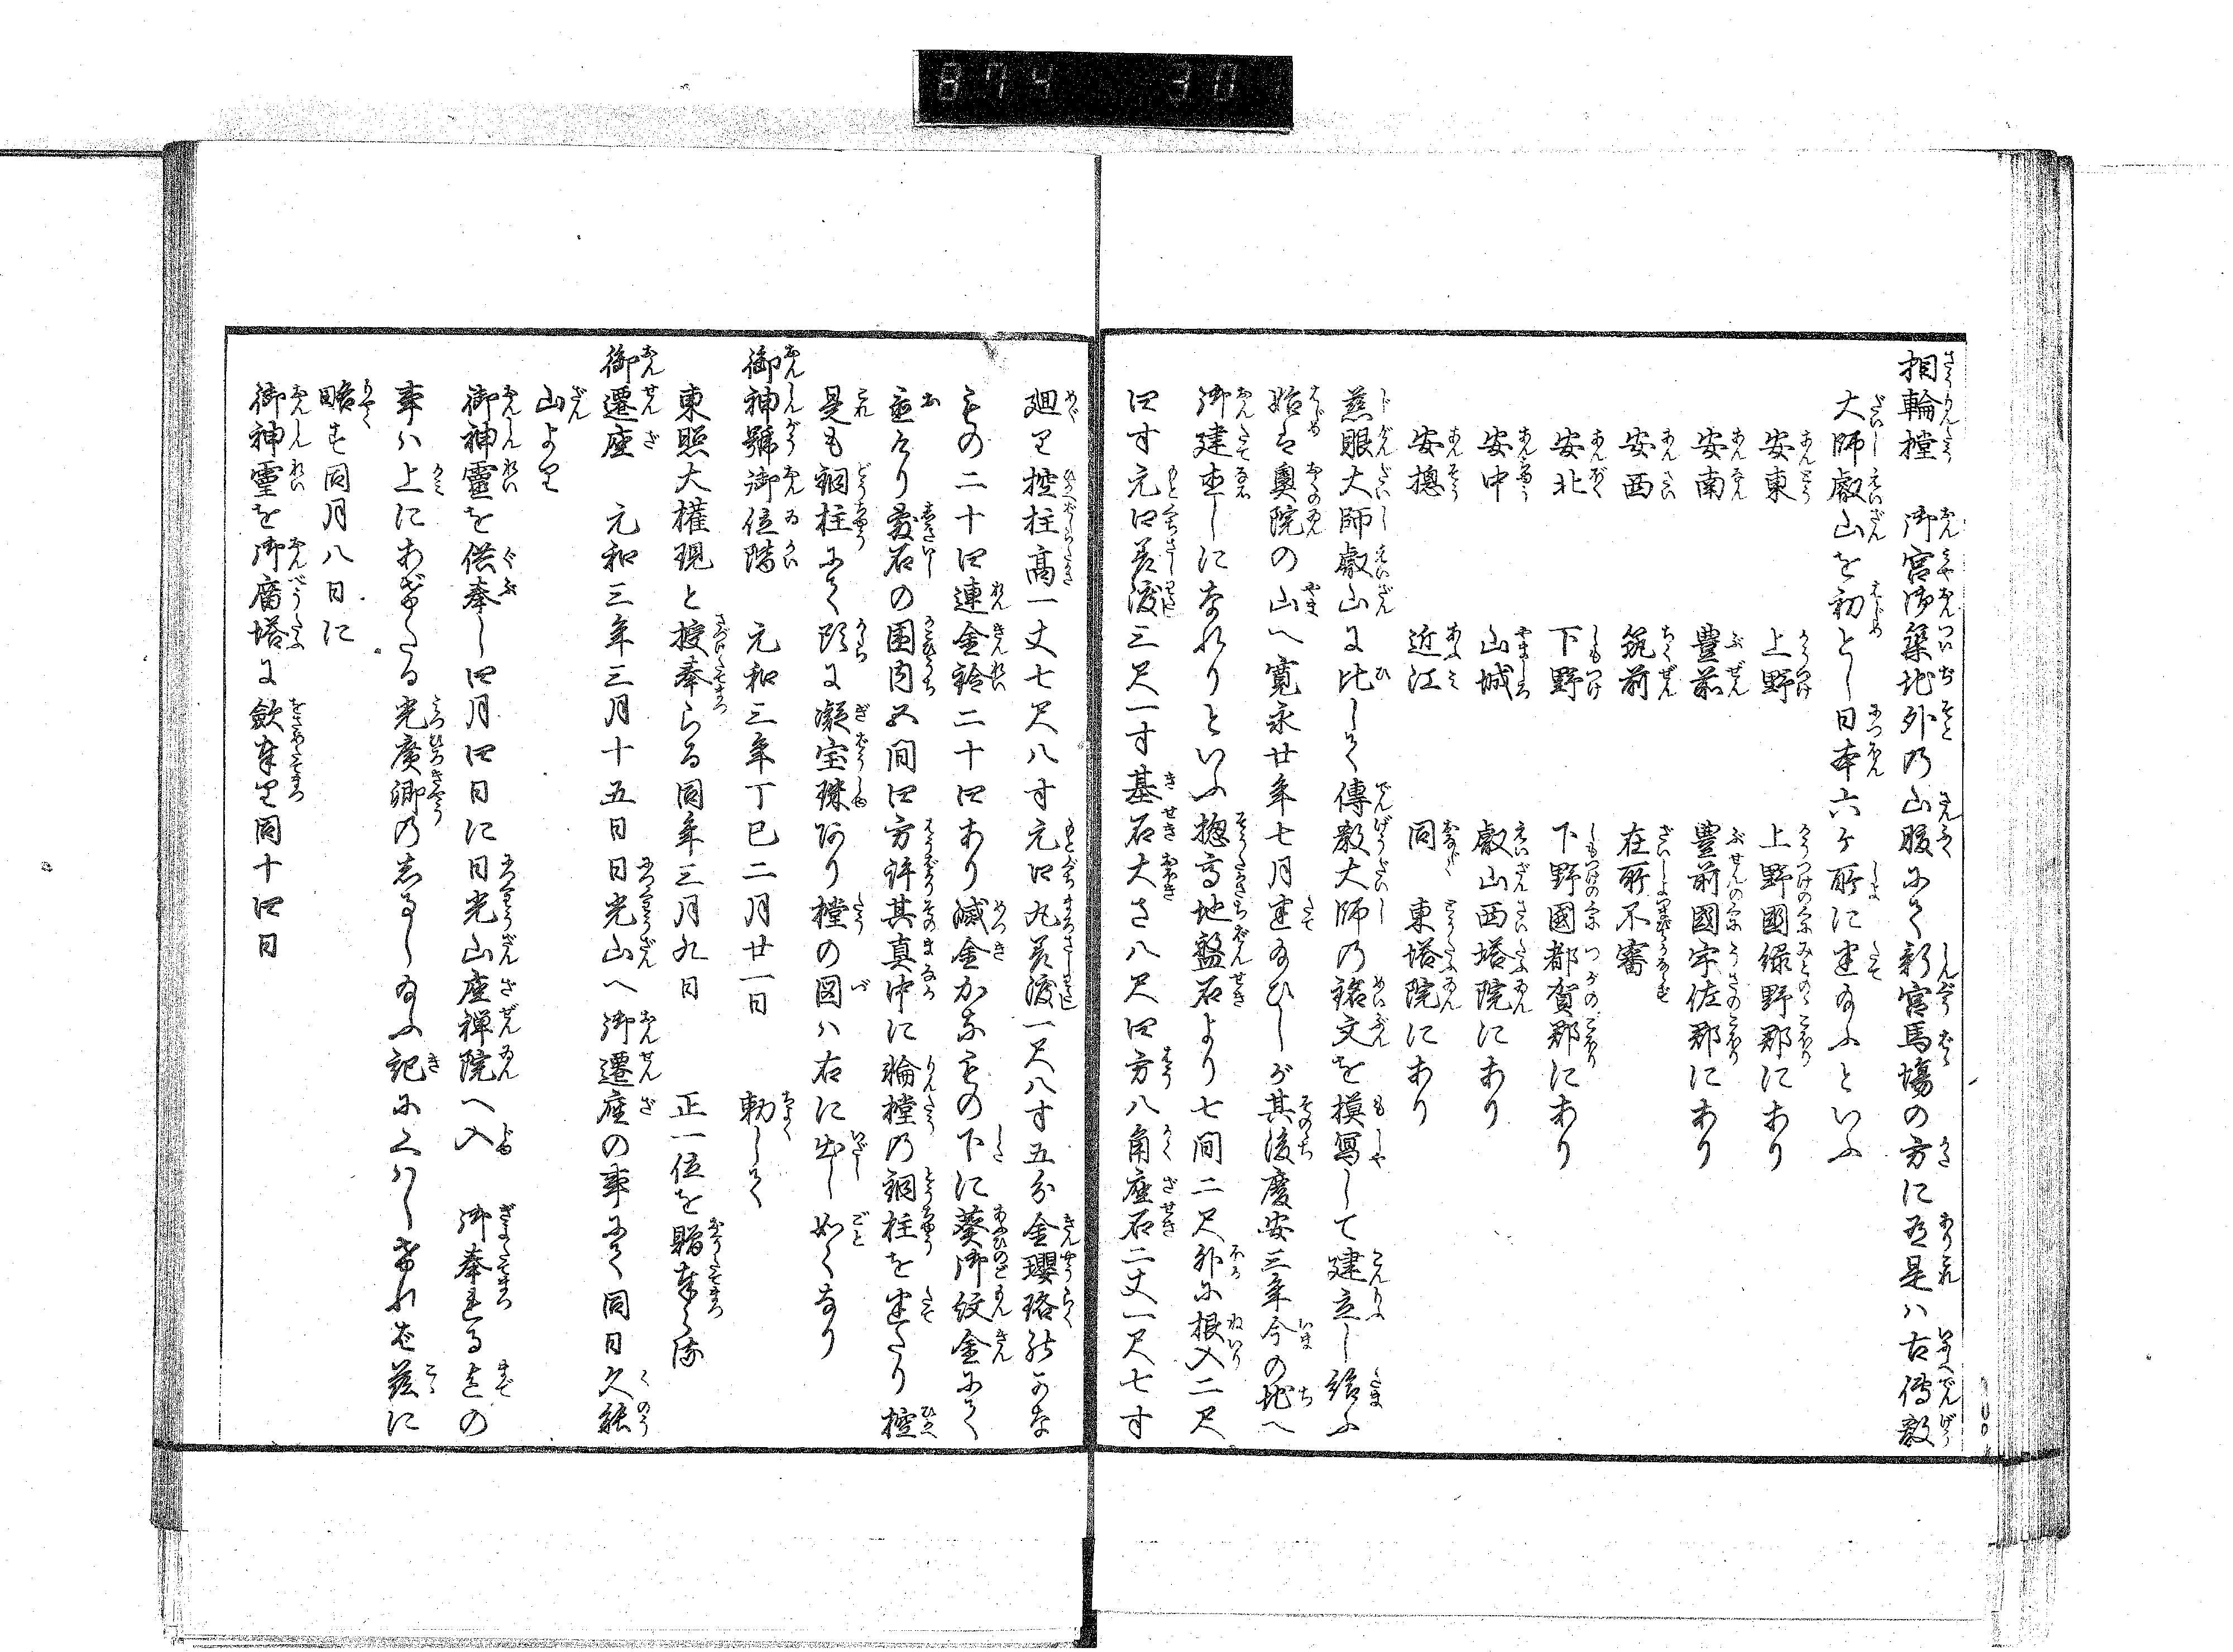 874 30
相輪樘　御宮御築地外乃山腹にて新宮馬場の方に有是ハ古傳教
大師叡山を初とし日本六ケ所に建給ふといふ
安東　上野　上野國緑野郡にあり
安南　豊前　豊前國宇佐郡にあり
安西　筑前　在所不審
安北　下野　下野國都賀郡にあり
安中　山城　叡山西塔院にあり
安總　近江　同　東塔院にあり
慈眼大師叡山に比して傳教大師乃銘文を模寫して建立し給ふ
始は奥院の山へ寛永廿年七月建給ひしが其後慶安三年今の地へ
御建直しになれりといふ惣高地盤石より七間二尺外に根入二尺
四寸元口差渡三尺一寸基石大さ八尺四方八角座石二丈一尺七寸
廻り控柱高一丈七尺八寸元口丸差渡一尺八寸五分金瓔珞
もの二十四連金鈴二十四あり滅金かなもの下に葵御紋金にて
並たり敷石の囲内五間四方許其真中に輪樘乃銅柱を建たり控
是も銅柱にて頭に凝宝珠あり樘の図ハ右に出し如くなり
御神號御位階　元和三年丁巳二月廿一日　勅して
東照大權現と授奉らる同年三月九日　正一位を贈奉らる
御遷座　元和三年三月十五日日光山へ御遷座の事にて同日久能
山より
御神靈を供奉し四月四日に日光山座禅院へ入　御奉れるまての
事ハ上にあげたる光廣卿の志るし給ふ記にくハしければ茲に
略す同月八日に
御神靈を御廟塔に斂奉り同十四日